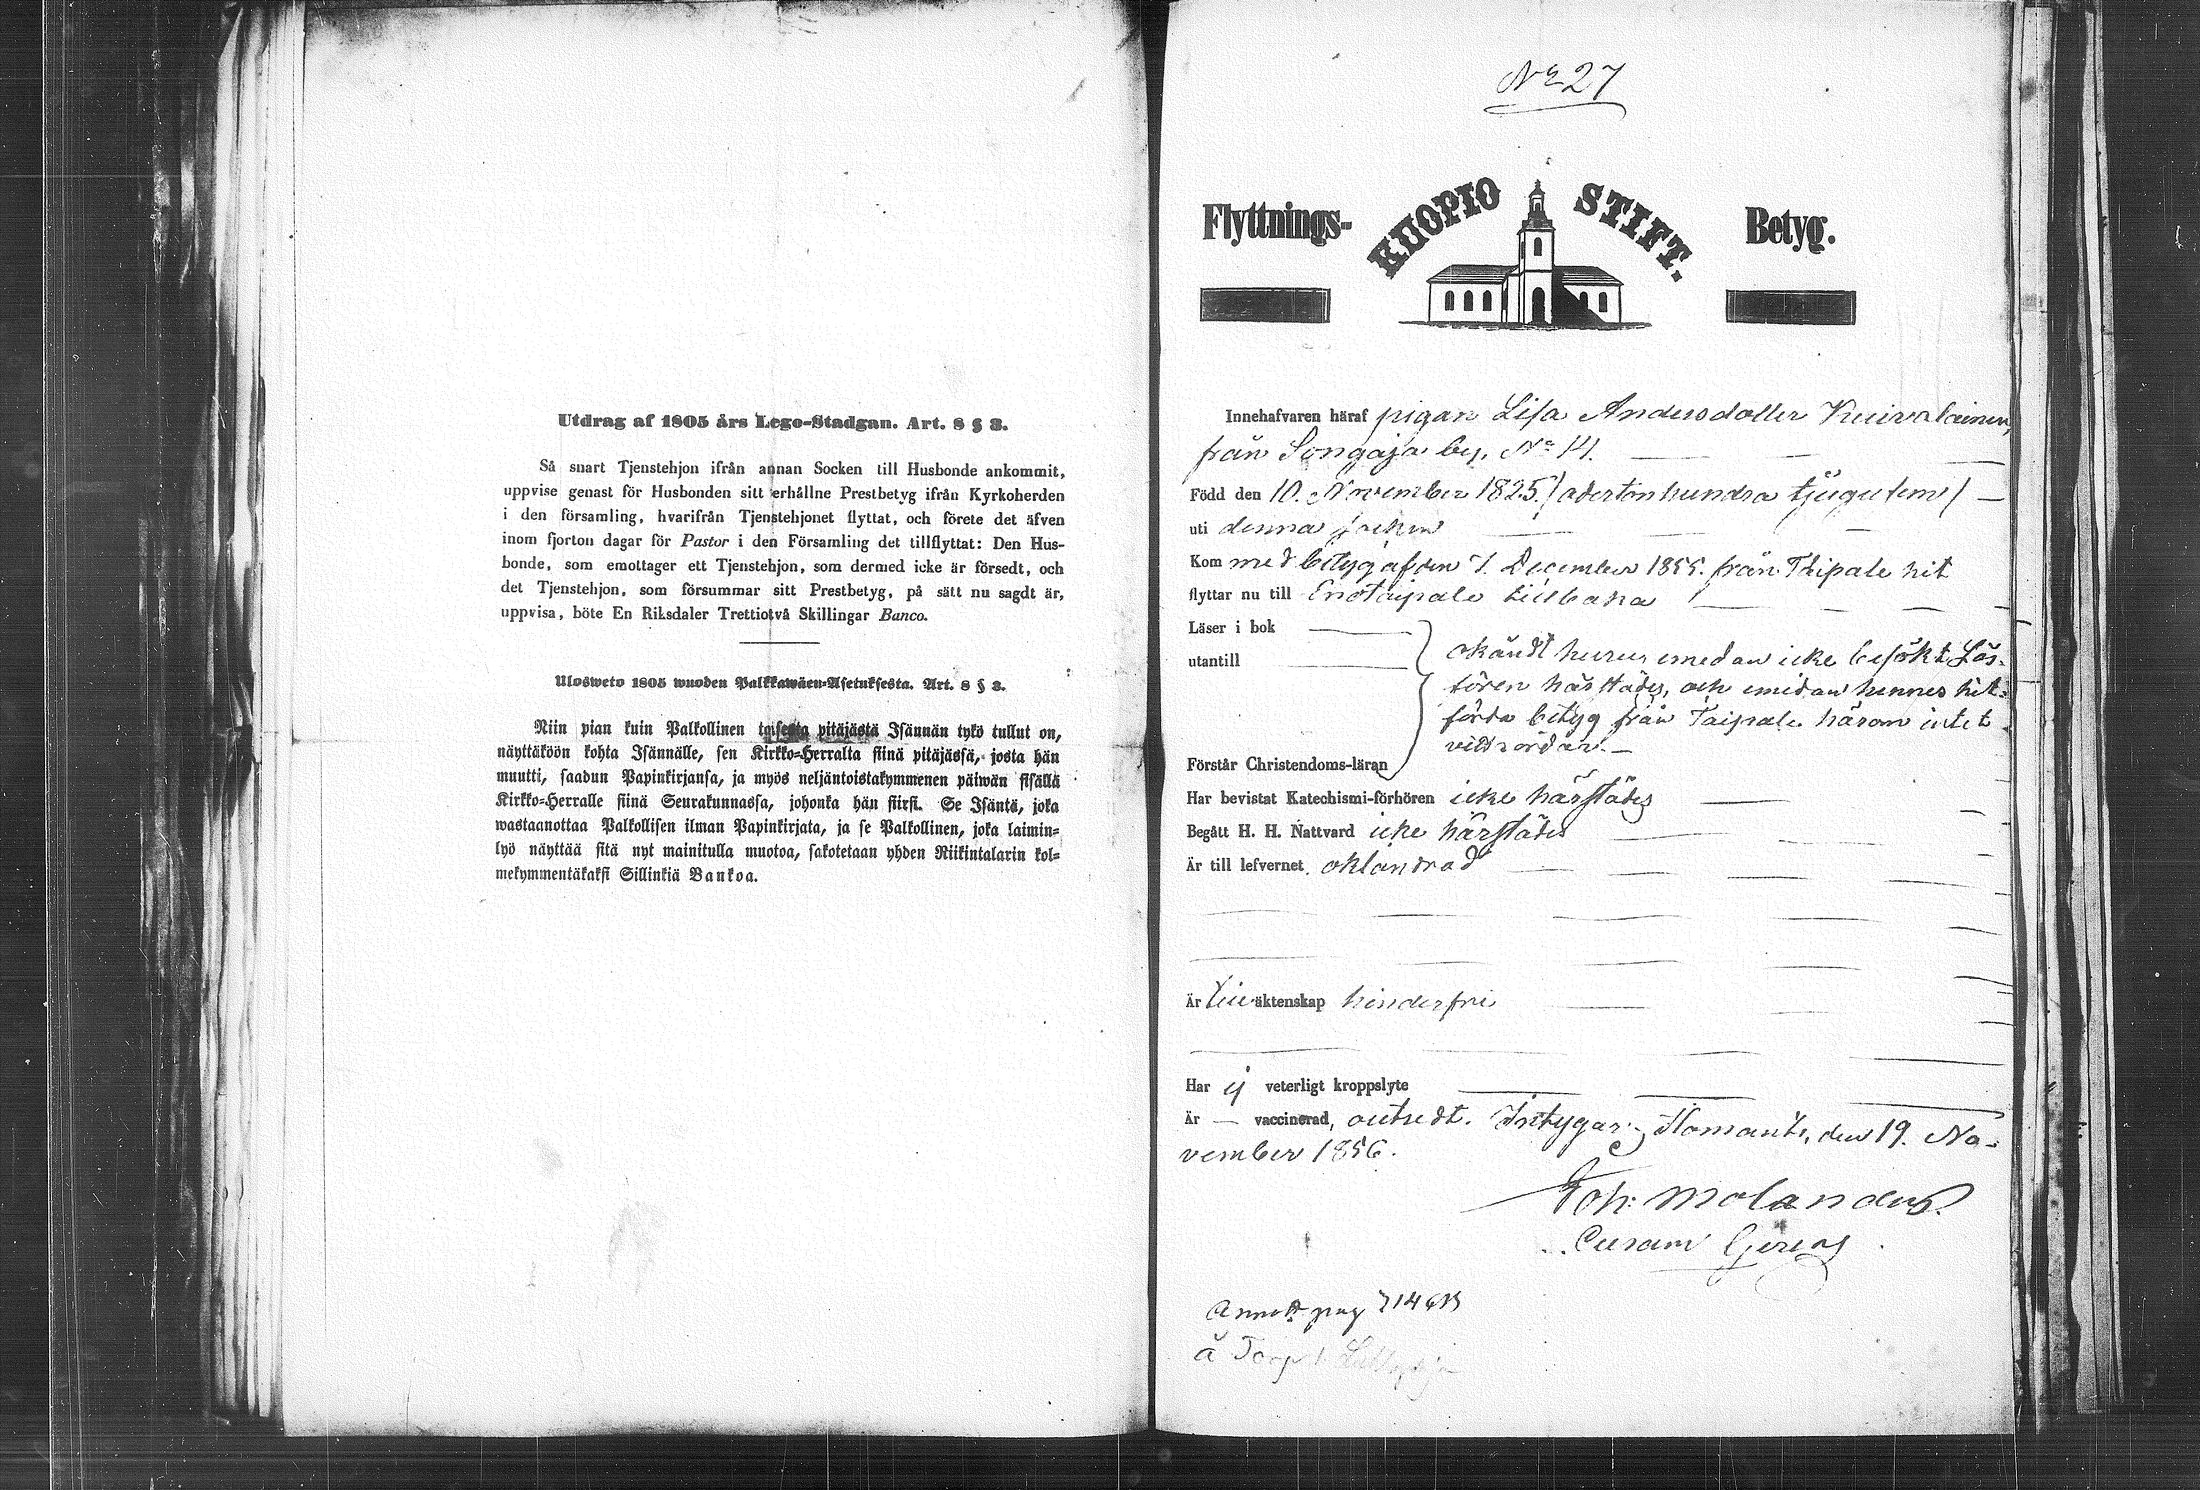 Utdrag af 1805 års Lego-Stadgan. Art. 8 § 3.
Så snart Tjenstehjon ifrån annan Socken till Husbonde ankommit,
uppvise genast för Husbonden sitt erhållne Prestbetyg ifrån Kyrkoherden
i den församling, hvarifrån Tjenstehjonet flyttat, och förete det äfven
inom fjorton dagar för Pastor i den Församling det tillflyttat: Den Hus-
bonde, som emottager ett Tjenstehjon, som dermed icke är försedt, och
det Tjenstehjon, som försummar sitt Prestbetyg, på sätt nu sagdt är,
uppvisa, böte En Riksdaler Trettiotvå Skillingar Banco.
Ulosweto 1805 wuoden Palkkawäen-Asetuksesta. Art. 8 § 3.
Niin pian kuin Palkollinen toisesta pitäjästä Isännän tykö tullut on,
näyttäköön kohta Isännälle, sen Kirkko-Herralta siinä pitäjässä, josta hän
muutti, saadun Papinkirjansa, ja myös neljäntoistakymmenen päiwän sisällä
Kirkko-Herralle siinä Seurakunnassa, johonka hän siirsi. Se Isäntä, joka
wastaanottaa Palkollisen ilman Papinkirjata, ja se Palkollinen, joka laimin-
lyö näyttää sitä nyt mainitulla muotoa, sakotetaan yhden Riikintalarin kol-
mekymmentäkaksi Sillinkiä Bankoa.
No 27
Flyttnings- KUOPIO STIFT. Betyg.
Innehafvaren häraf pigan Lisa Andersdotter Kuivalainen,
från Songaja by, No 14.
Född den 10. November 1825. /adertonhundra tjugufem/
uti denna socken
Kom med betyg af den 7. December 1855. från Taipale hit
flyttar nu till Enotaipale tillbaka
Läser i bok
utantill
okändt huru, emedan icke besökt Läs-
fören härstädes, och emedan hennes hit-
förda betyg från Taipale härom intet
Förstår Christendoms-läran
Har bevistat Katechismi-förhören icke härstädes
Begått H. H. Nattvard icke härstädes
Är till lefvernet oklandrad
Är till äktenskap hinderfri
Har ej veterligt kroppslyte
Är — vaccinerad, outredt. Intygar; Ilomants, den 19. No-
vember 1856.
Joh: Molander.
Curam Gerens
Annott pag 714
å